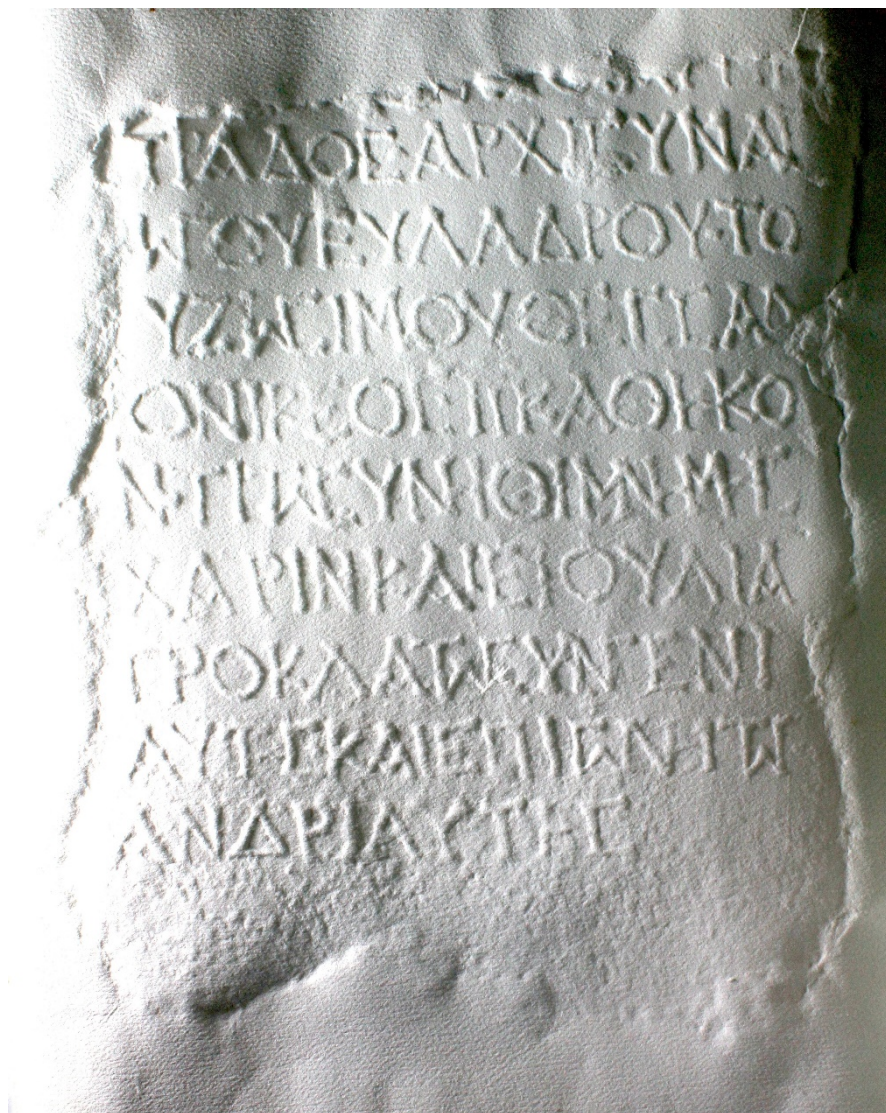 ΠΡΑΔΟΣΑΡΧΙΣΥΝΑΓ
ΩΓΟΥΕΥΛΑΔΡΟΥΤΟ
ΥΖΩΣΙΜΟΥΘΕΣΣΑΛ
ΟΝΙΚΕΟΕΠΙΚΑΘΗΚΟ
ΝΤΙΤΩΣΥΝΗΘΙΜΝΗΜΗΣ
ΧΑΡΙΝΚΑΙΕΙΟΥΛΙΑ
ΠΡΟΚΛΑΤΩΣΥΝΓΕΝΙ
ΑΥΤΗΣΚΑΙΕΠΙΩΝΗΤΩ
ΑΝΔΡΙΑΥΤΗΣ